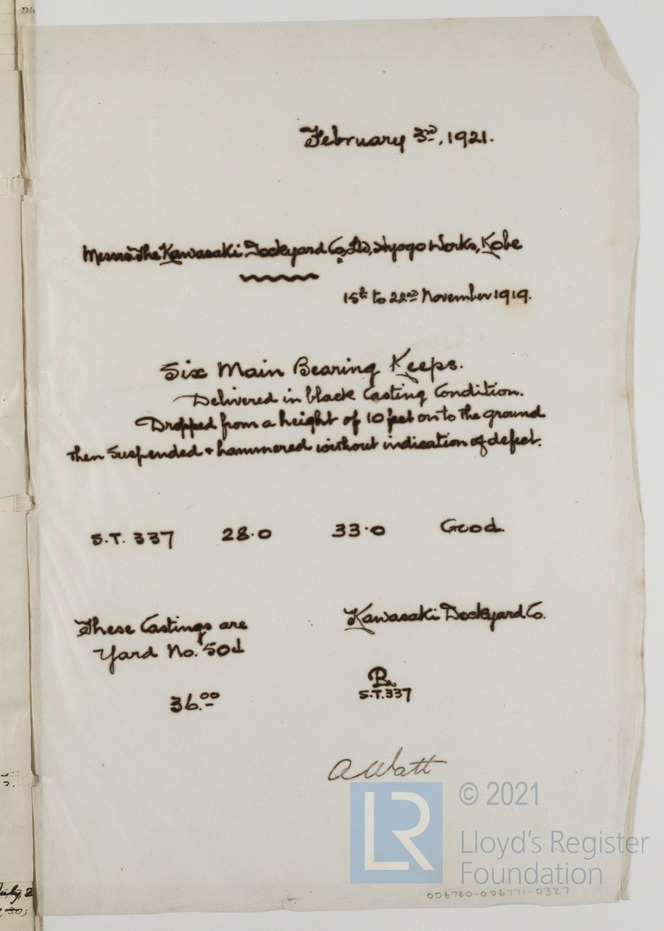 February 3rd, 1921.
Messrs The Kawasaki Dockyard Co, Ltd, Hyogo Works, Kobe
15th to 22nd November 1919.
Six Main Bearing Keeps.
Delivered in black Casting Condition.
Dropped from a height of 10 feet on to the ground
then Suspended & hammered without indication of defect.
S.T. 337 28.0 33.0 Good
These Castings are
Yard No. 50d
36.00
Kawasaki Dockyard Co.
S.T.337
A Watt
LR
© 2021
Lloyd's Register
Foundation
006760-006771-0327
July 2